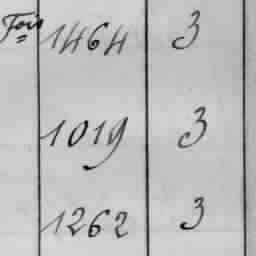 1464 3
1019 3
1262 3